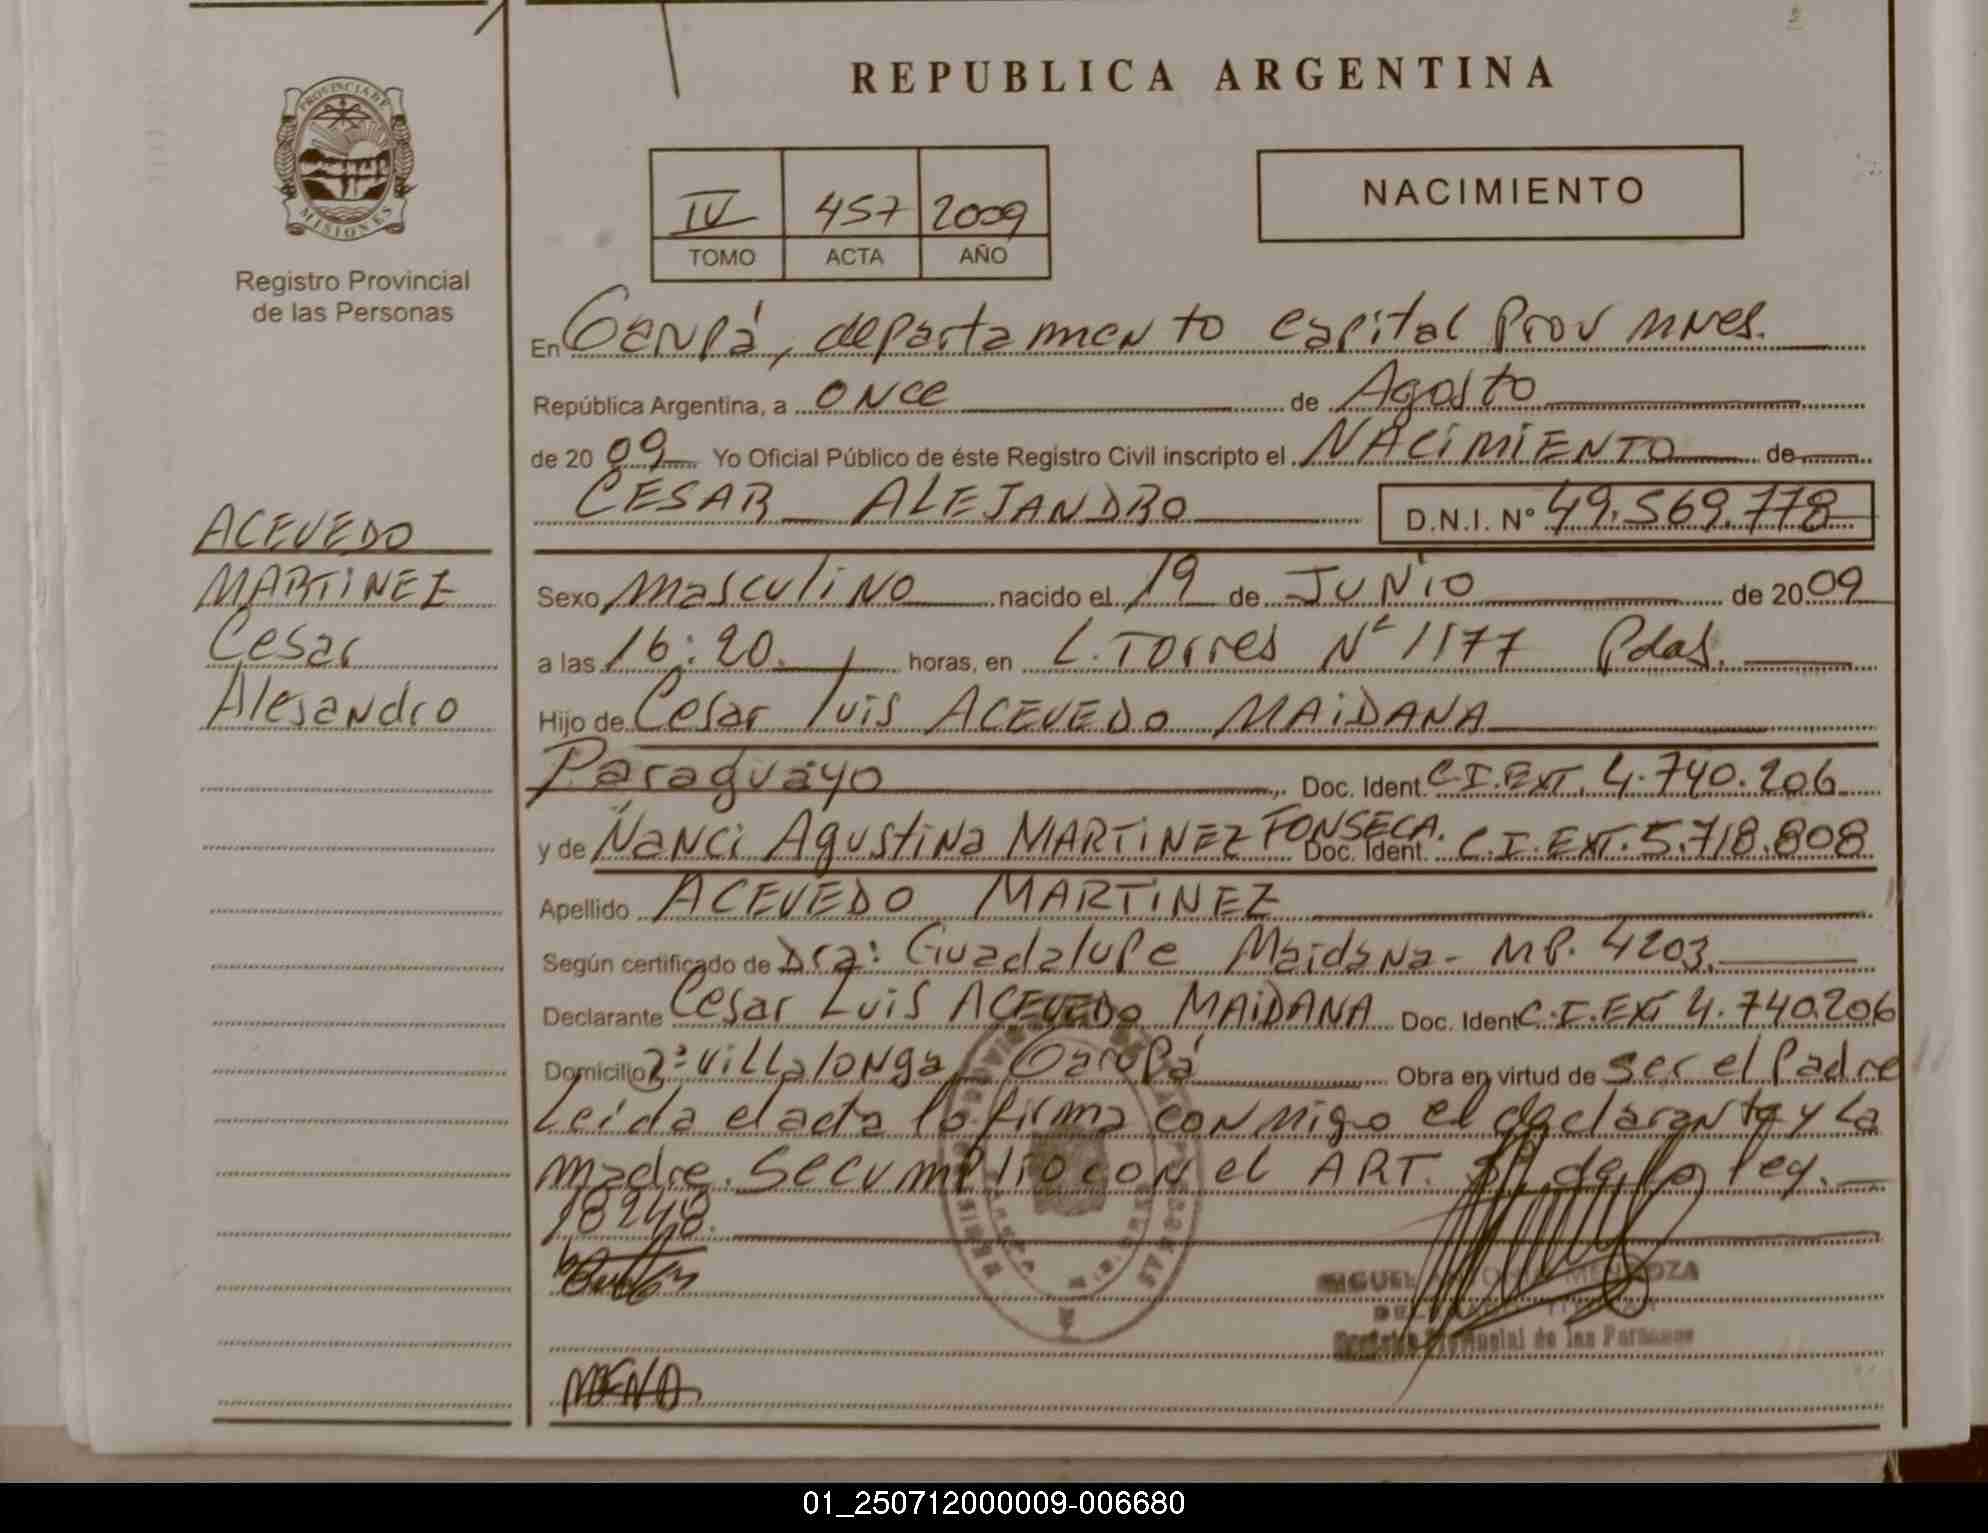 REPUBLICA ARGENTINA
PROVINCIA DE
MISIONES
Registro Provincial
de las Personas
IV 457 2009
TOMO ACTA AÑO
NACIMIENTO
En Garupá, departamento capital Prov Mnes.
República Argentina, a once de Agosto
de 2009 Yo Oficial Público de éste Registro Civil inscripto el NACIMIENTO de
CESAR ALEJANDRO D.N.I. Nº 49.569.778
ACEVEDO
MARTINEZ
Cesar
Alejandro
Sexo masculino nacido el 19 de JUNIO de 2009
a las 16:20. horas, en L. Torres Nº 1177 Pdas.
Hijo de Cesar luis ACEVEDO MAIDANA
Paraguayo Doc. Ident. C.I.EXT. 4.740.206
y de Nanci Agustina MARTINEZ FONSECA. Doc. Ident. C.I.EXT. 5.718.808
Apellido ACEVEDO MARTINEZ
Según certificado de Dra: Guadalupe Maidana - MP. 4203.
Declarante Cesar Luis ACEVEDO MAIDANA Doc. Ident C.I.EXT 4.740.206
Domicilio Villalonga Garupá Obra en virtud de ser el Padre
Leida el acta la firma conmigo el declarante y La
madre. Se cumplio con el ART. de la ley.
18248.
MIGUEL ANTONIO MENDOZA
DELEGADO TITULAR
Registro Provincial de las Personas
01_250712000009-006680